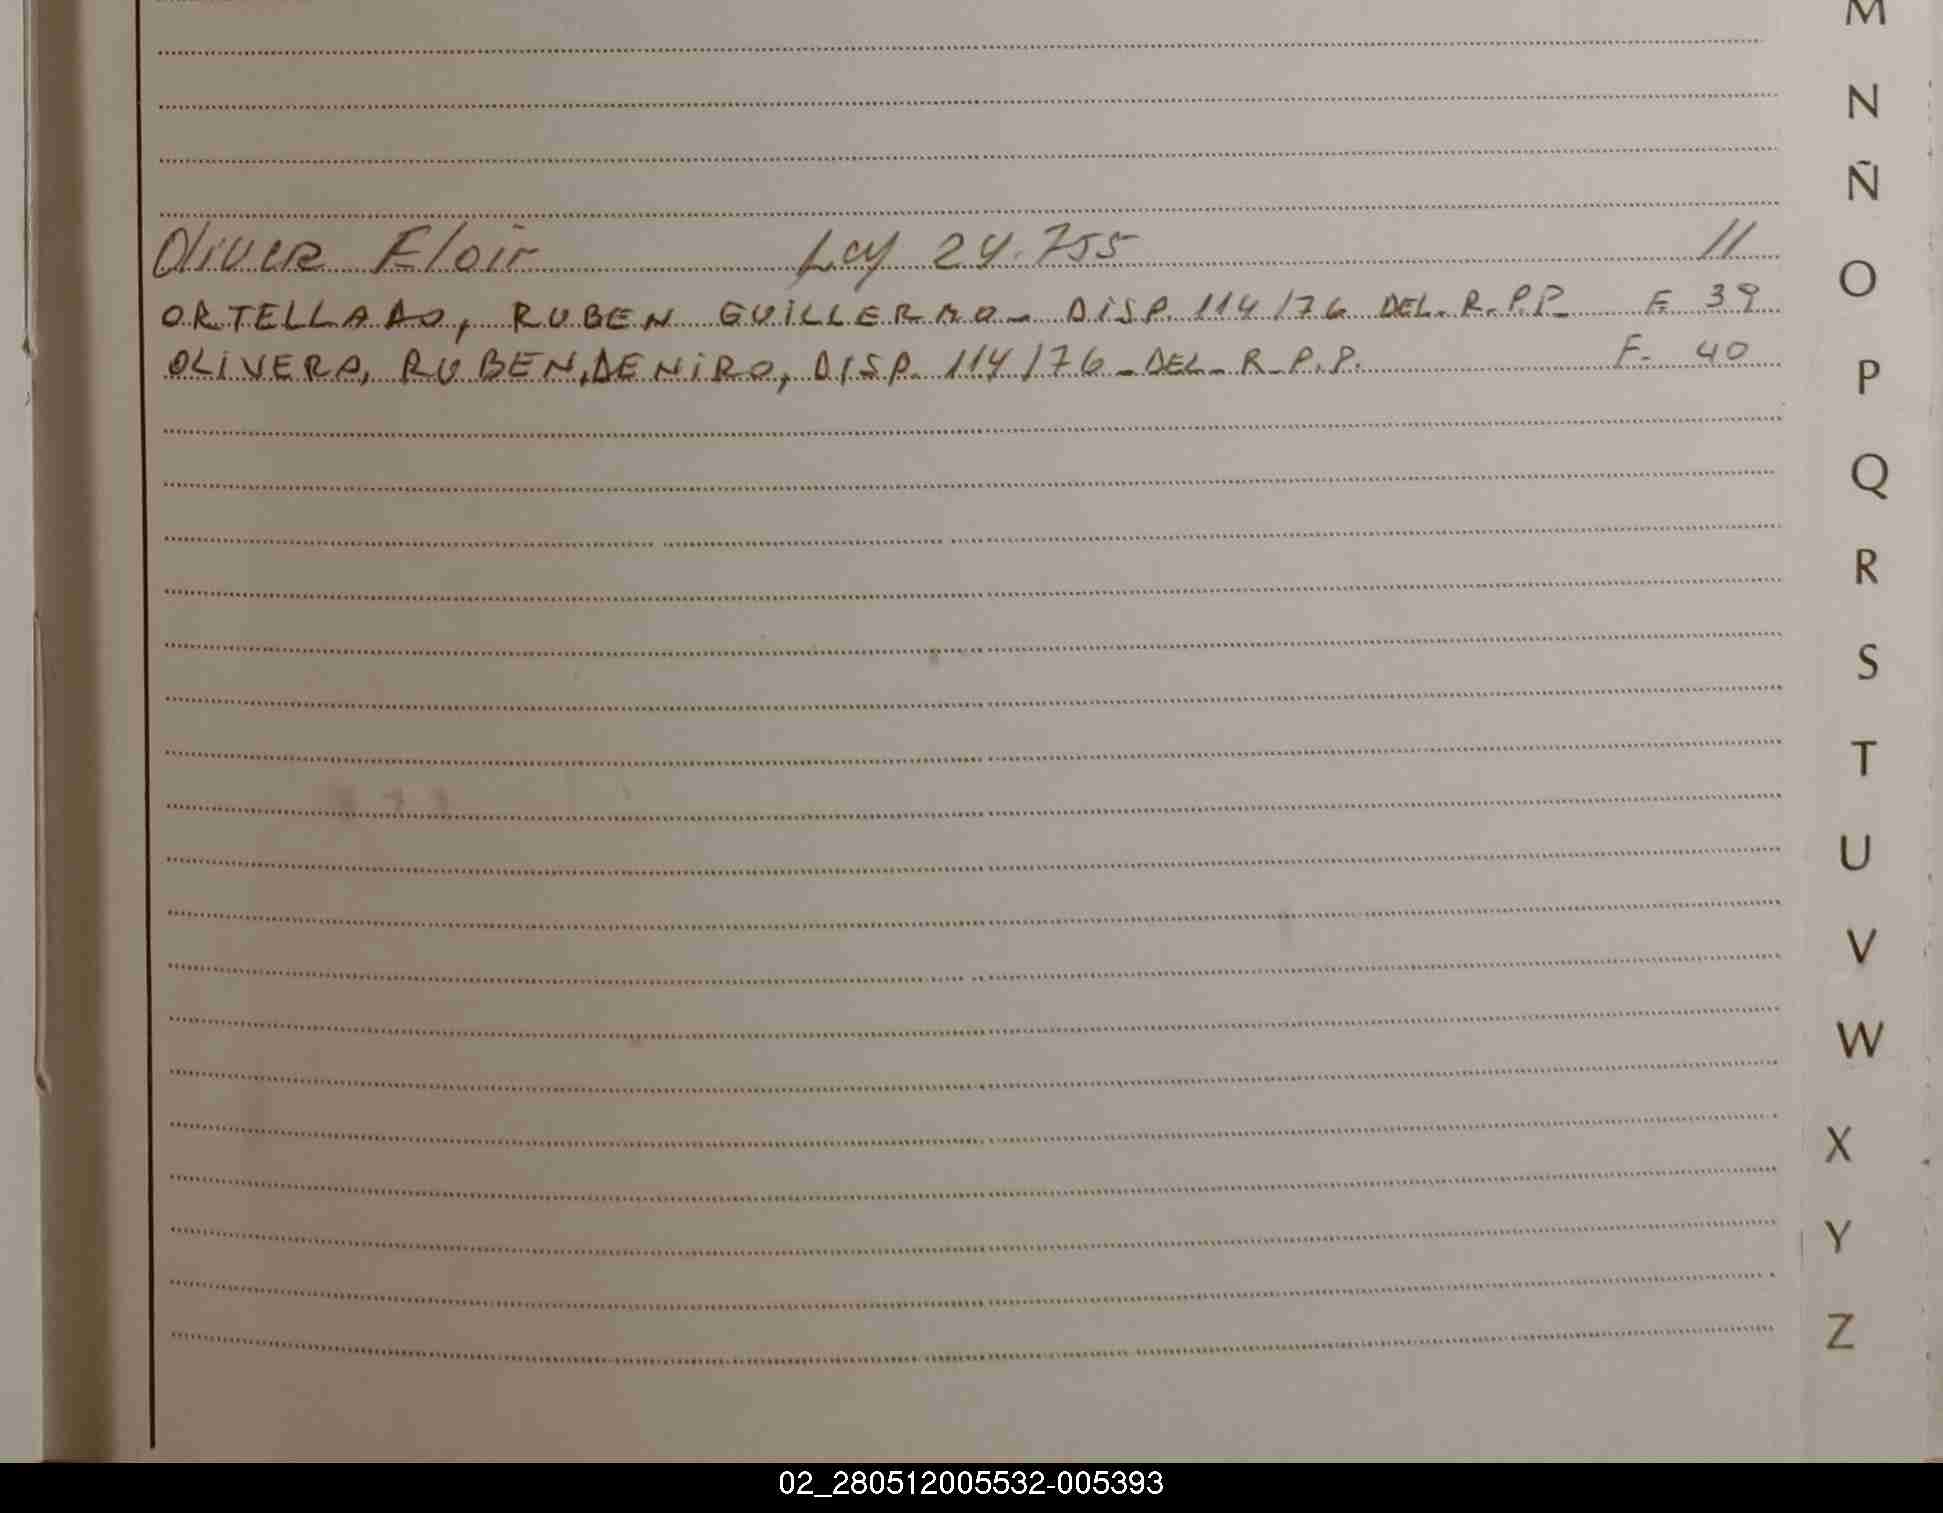 M
N
Ñ
Oliver Eloir Ley 24.755 11
O
ORTELLADO, RUBEN GUILLERMO- DISP. 114/76 DEL. R.P.P- F. 39
OLIVERA, RUBEN, DENIRO, DISP. 114/76- DEL- R-P.P. F. 40
P
Q
R
S
T
U
V
W
X
Y
Z
02_280512005532-005393